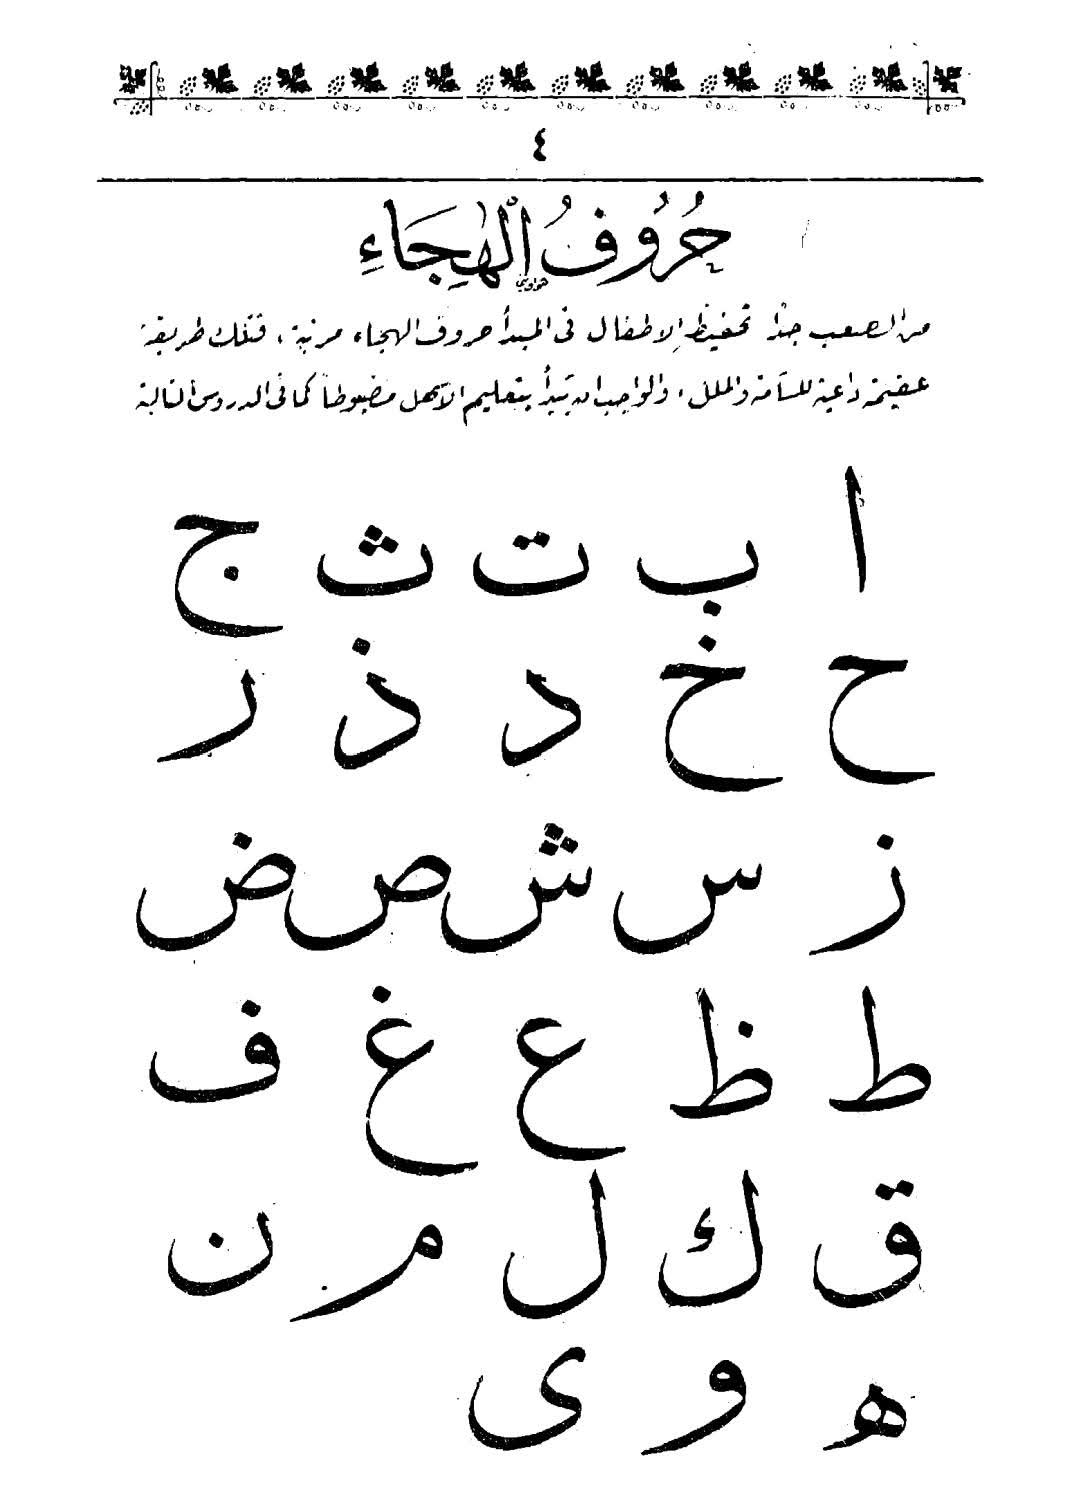 ٤
حُرُوفُ الْهِجَاءِ
هواويني
من الصعب جدًا تحفيظ الاطفال فى المبدأ حروف الهجاء مرتبة، فتلك طريقة
عقيمة داعية للسآمة والملل، والواجب ان يَبتدأ بتعليم الاسهل مضبوطاً كما فى الدروس التالية
ا ب ت ث ج
ح خ د ذ ر
ز س ش ص ض
ط ظ ع غ ف
ق ك ل م ن
ه و ى